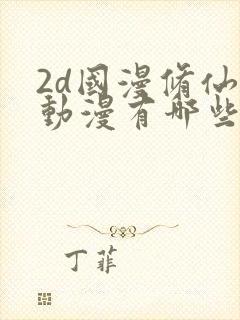 2d國漫脩仙
動漫有哪些
丁菲